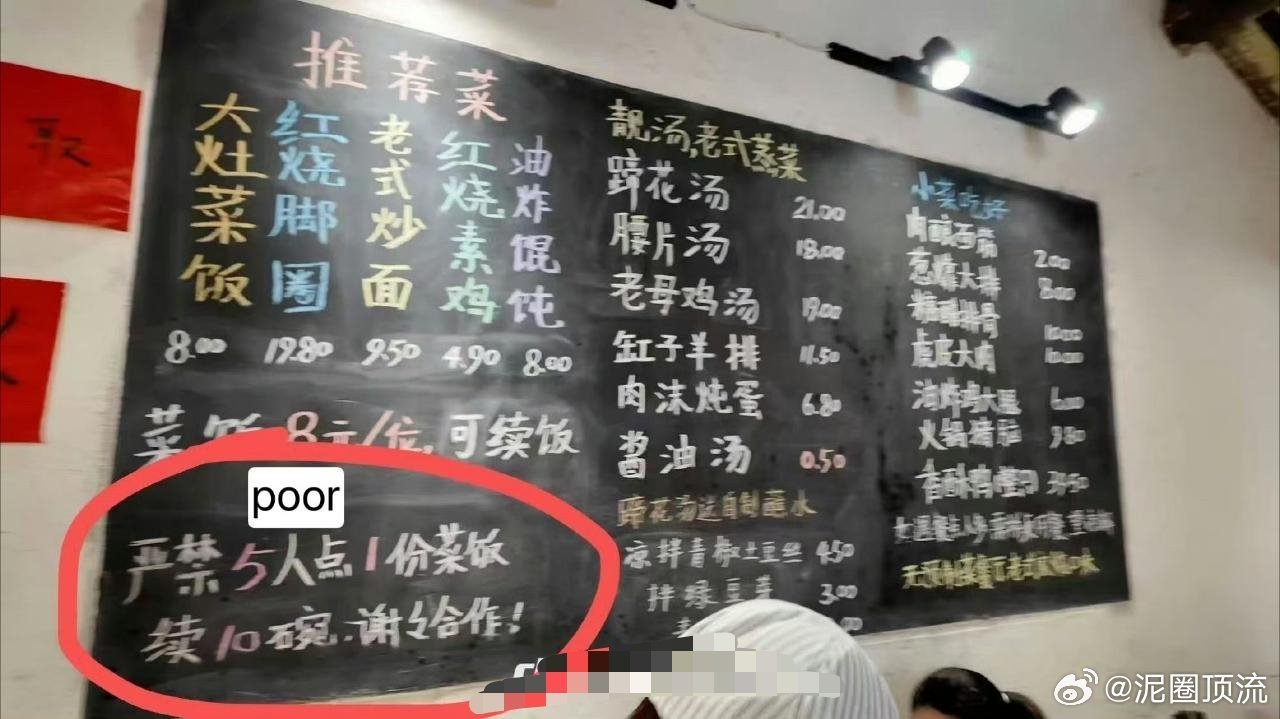 推荐菜
大灶菜饭 红烧脚圈 老式炒面 红烧素鸡 油炸馄饨
8.00 19.80 9.50 4.90 8.00
菜饭 8元/位,可续饭
poor
严禁5人点1份菜饭
续10碗.谢谢合作!
靓汤,老式蒸菜
蹄花汤 21.00
腰片汤 18.00
老母鸡汤 19.00
缸子羊排 11.50
肉沫炖蛋 6.80
酱油汤 0.50
蹄花汤送自制蘸水
凉拌青椒土豆丝 4.50
拌绿豆芽 3.00
小菜吃好
肉酿面筋 2.00
葱㸆大排 8.00
糖醋排骨 10.00
虎皮大肉 10.00
油炸鸡大腿 6.00
火锅猪肚 9.80
香酥鸭
@泥圈顶流